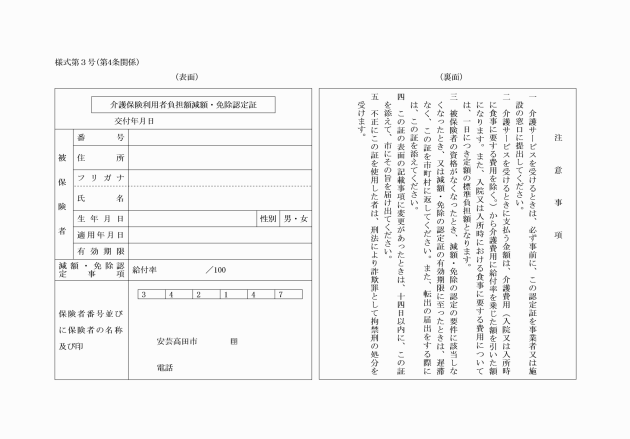 様式第３号(第4条関係)
(表面)
介護保険利用者負担額減額・免除認定証
交付年月日
被保険者
番号
住所
フリガナ
氏名
生年月日
性別
男・女
適用年月日
有効期限
減額・免除認
定事項
給付率　／100
保険者番号並び
に保険者の名称
及び印
3 4 2 1 4 7
安芸高田市　㊞
電話
(裏面)
注意事項
一　介護サービスを受けるときは、必ず事前に、この認定証を事業者又は施
設の窓口に提出してください。
二　介護サービスを受けるときに支払う金額は、介護費用（入院又は入所時
に食事に要する費用を除く。）から介護費用に給付率を乗じた額を引いた額
になります。また、入院又は入所時における食事に要する費用について
は、一日につき定額の標準負担額となります。
三　被保険者の資格がなくなったとき、減額・免除の認定の要件に該当しな
くなったとき、又は減額・免除の認定証の有効期限に至ったときは、遅滞
なく、この証を市町村に返してください。また、転出の届出をする際に
は、この証を添えてください。
四　この証の表面の記載事項に変更があったときは、十四日以内に、この証
を添えて、市にその旨を届け出てください。
五　不正にこの証を使用した者は、刑法により詐欺罪として拘禁刑の処分を
受けます。